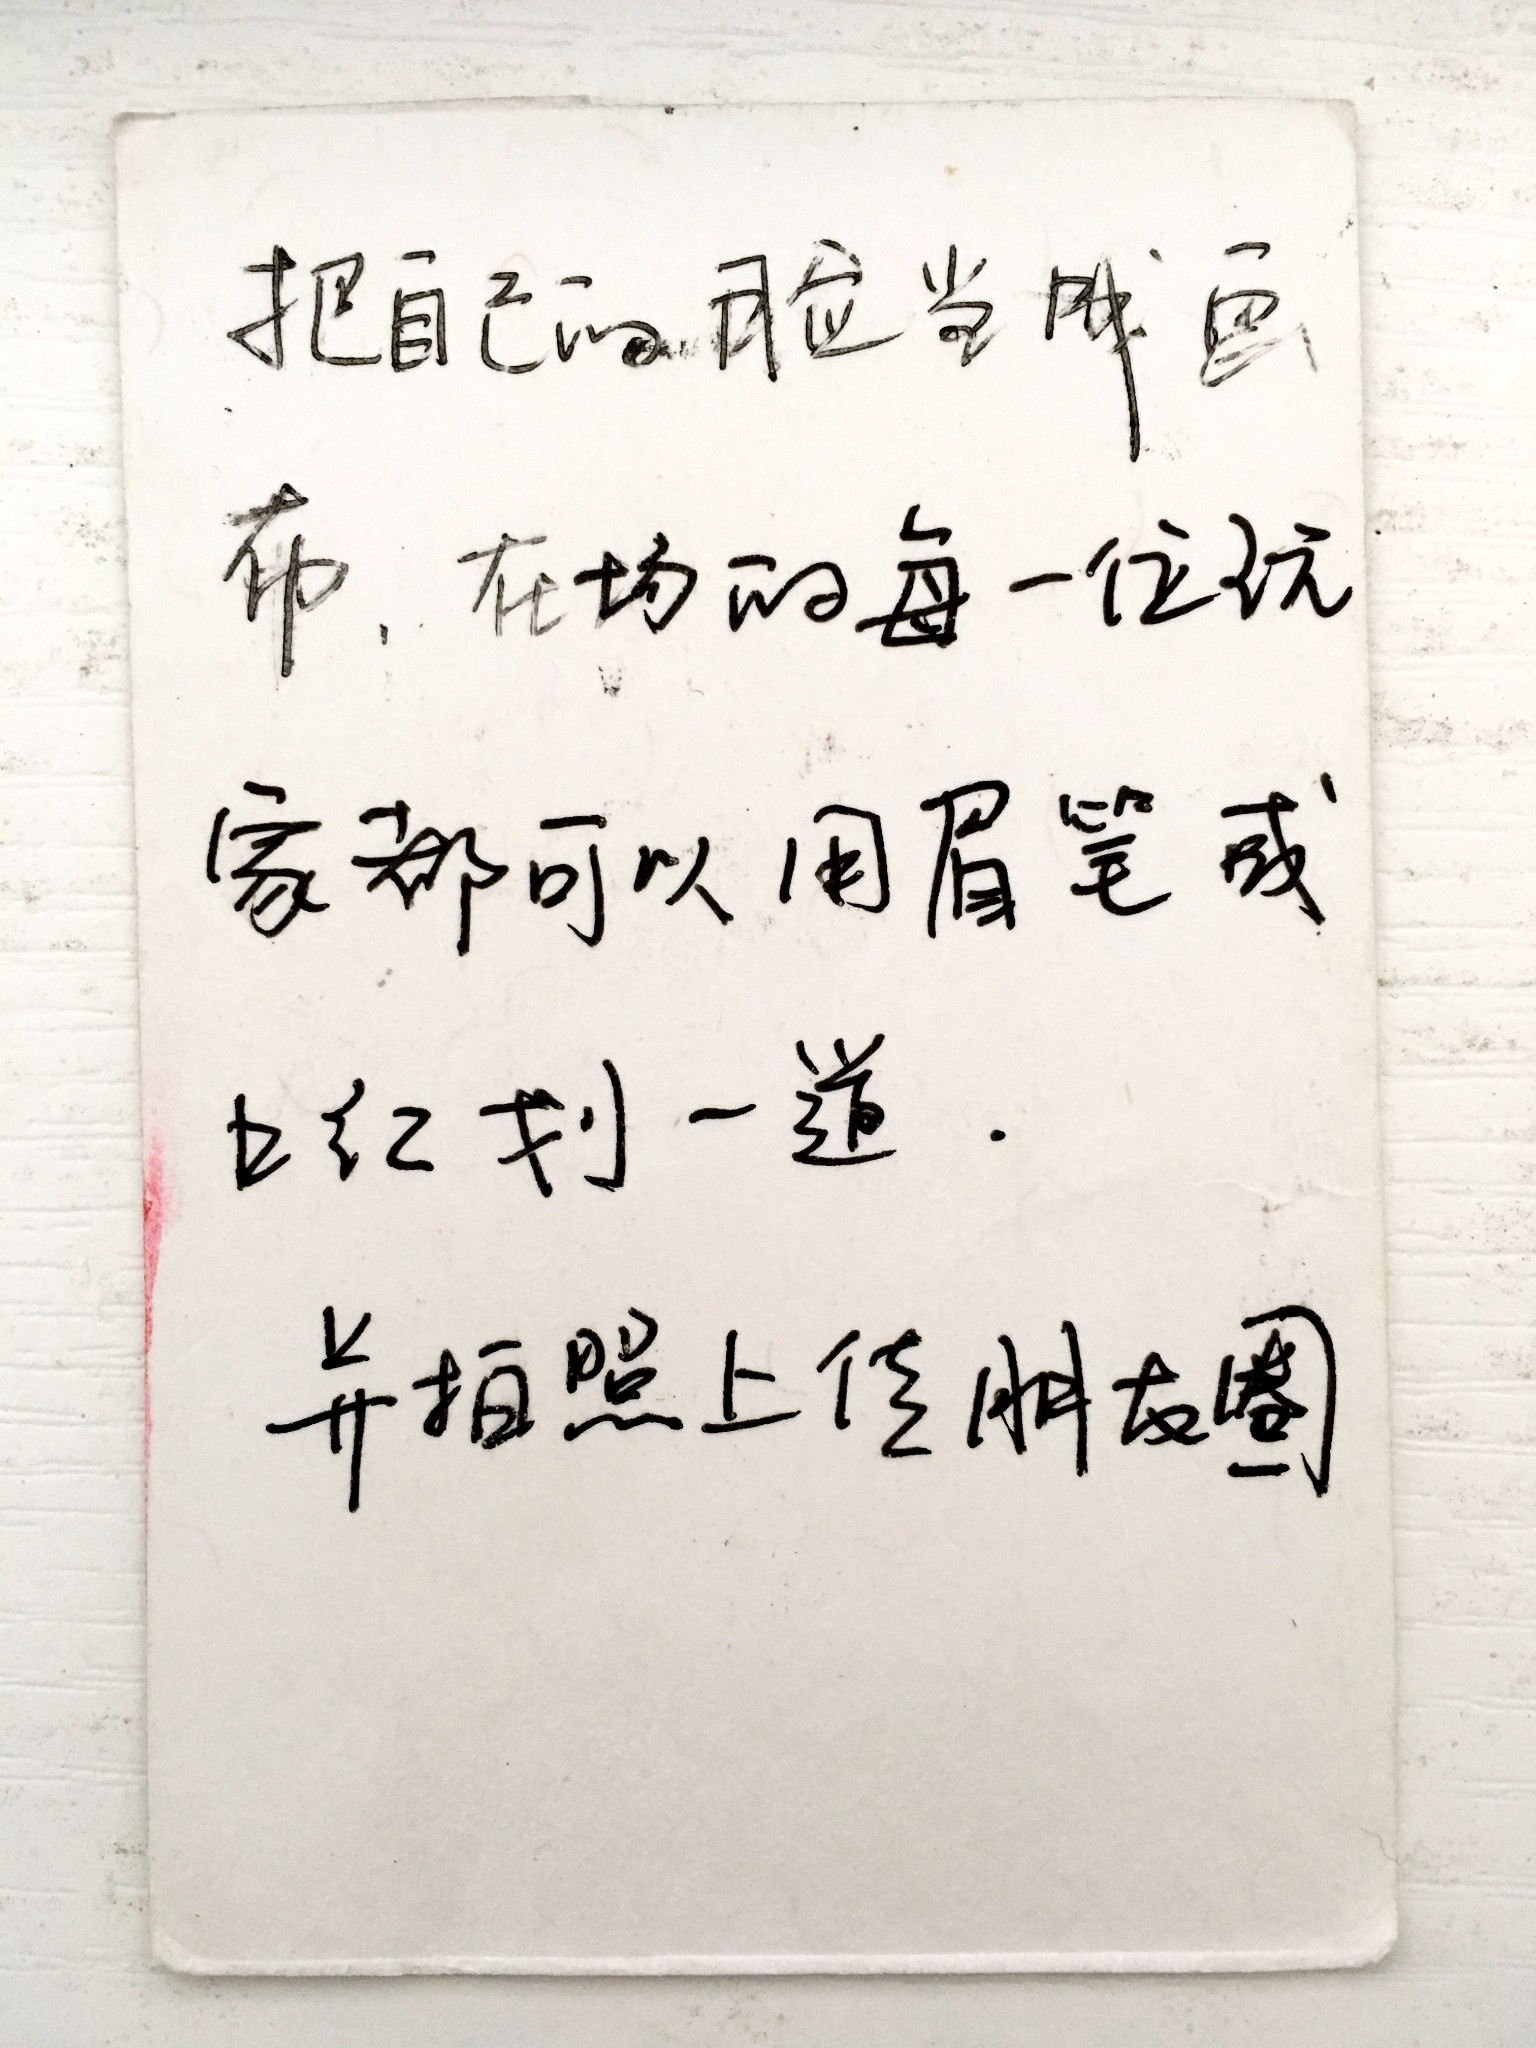 把自己的脸当成画
布，在场的每一位玩
家都可以用眉笔或
口红划一道.
并拍照上传朋友圈